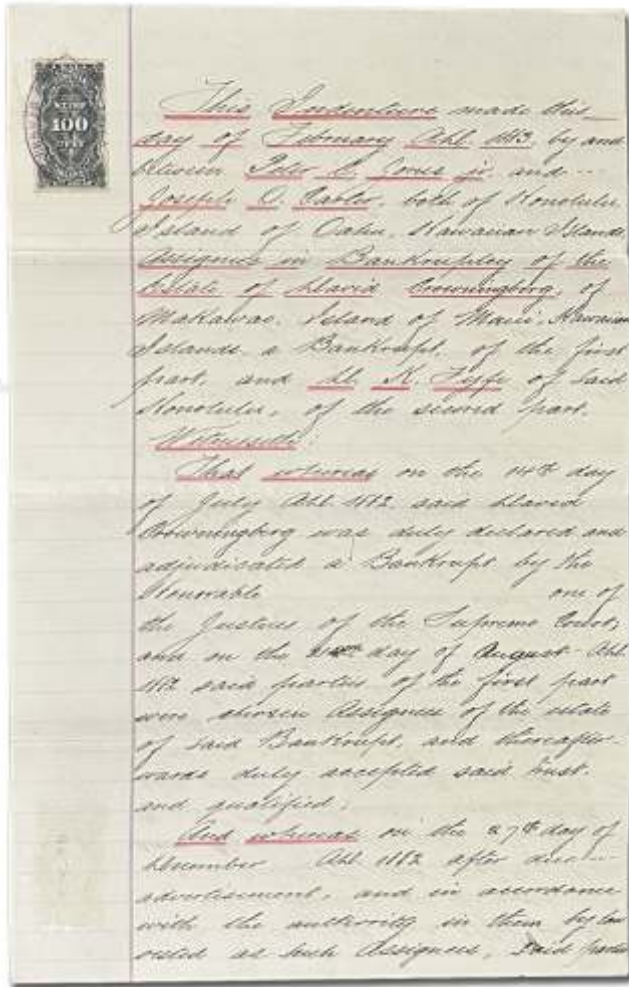 100
This Indenture made this
day of February A.D. 1883, by and
between Peter C. Jones jr. and
Joseph O. Carter, both of Honolulu
Island of Oahu, Hawaiian Islands
Assignees in Bankruptcy of the
Estate of David Crowningberg, of
Makawao, Island of Maui, Hawaiian
Islands, a Bankrupt, of the first
part, and D. K. Fyfe of said
Honolulu, of the second part.
Witnesseth:
That whereas on the 14th day
of July A.D. 1882, said David
Crowningberg was duly declared and
adjudicated a Bankrupt by the
Honorable one of
the Justices of the Supreme Court,
and on the day of August A.D.
1882 said parties of the first part
were chosen Assignees of the estate
of said Bankrupt, and thereafter-
wards duly accepted said trust.
and qualified;
And whereas on the 27th day of
December A.D. 1882 after due
advertisement, and in accordance
with the authority in them by law
vested as such Assignees, said parties